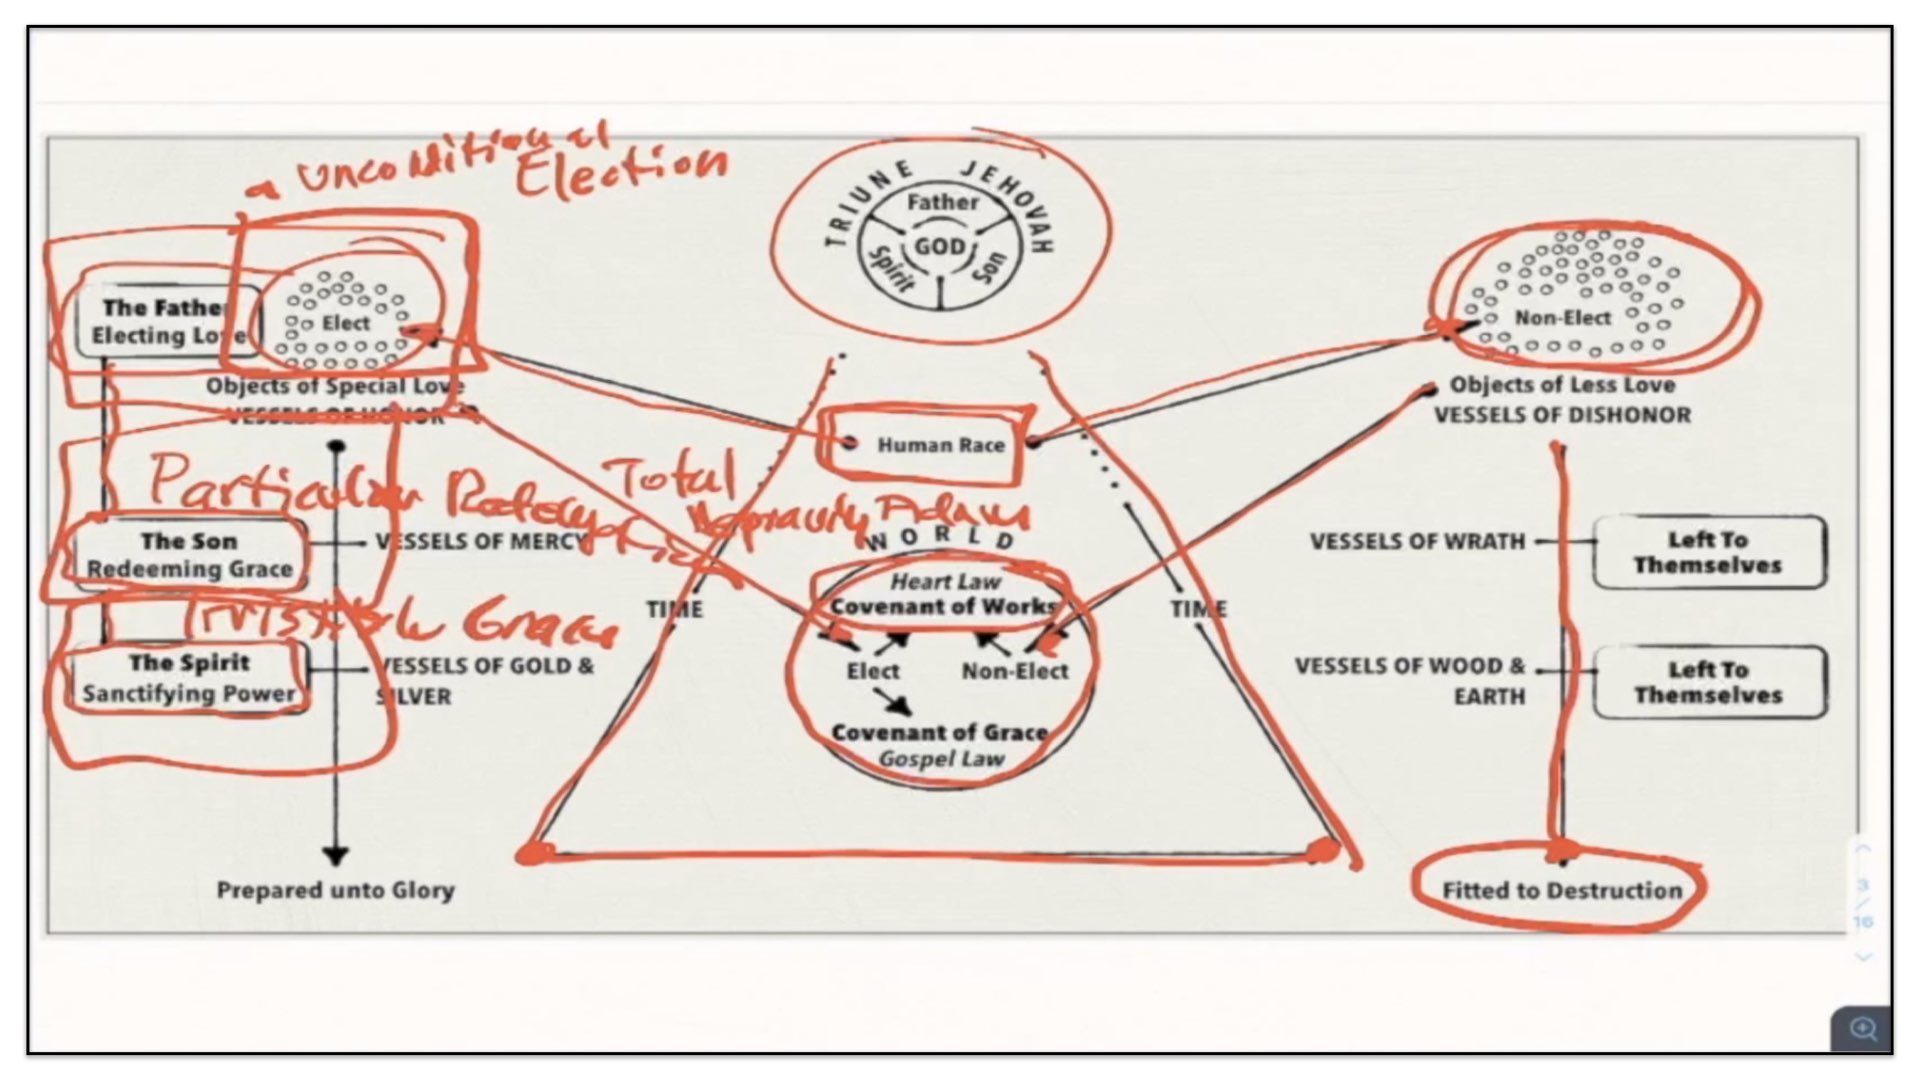 a Unconditional
Election
TRIUNE JEHOVAH
Father
GOD
Spirit
Son
The Father
Electing Love
Elect
Objects of Special Love
VESSELS OF HONOR
Non-Elect
Objects of Less Love
VESSELS OF DISHONOR
Human Race
Particular
Total
Adam
The Son
Redeeming Grace
VESSELS OF MERCY
WORLD
Heart Law
Covenant of Works
TIME
TIME
Elect
Non-Elect
Covenant of Grace
Gospel Law
VESSELS OF WRATH
Left To
Themselves
Grace
The Spirit
Sanctifying Power
VESSELS OF GOLD &
SILVER
VESSELS OF WOOD &
EARTH
Left To
Themselves
Prepared unto Glory
Fitted to Destruction
3
/
16